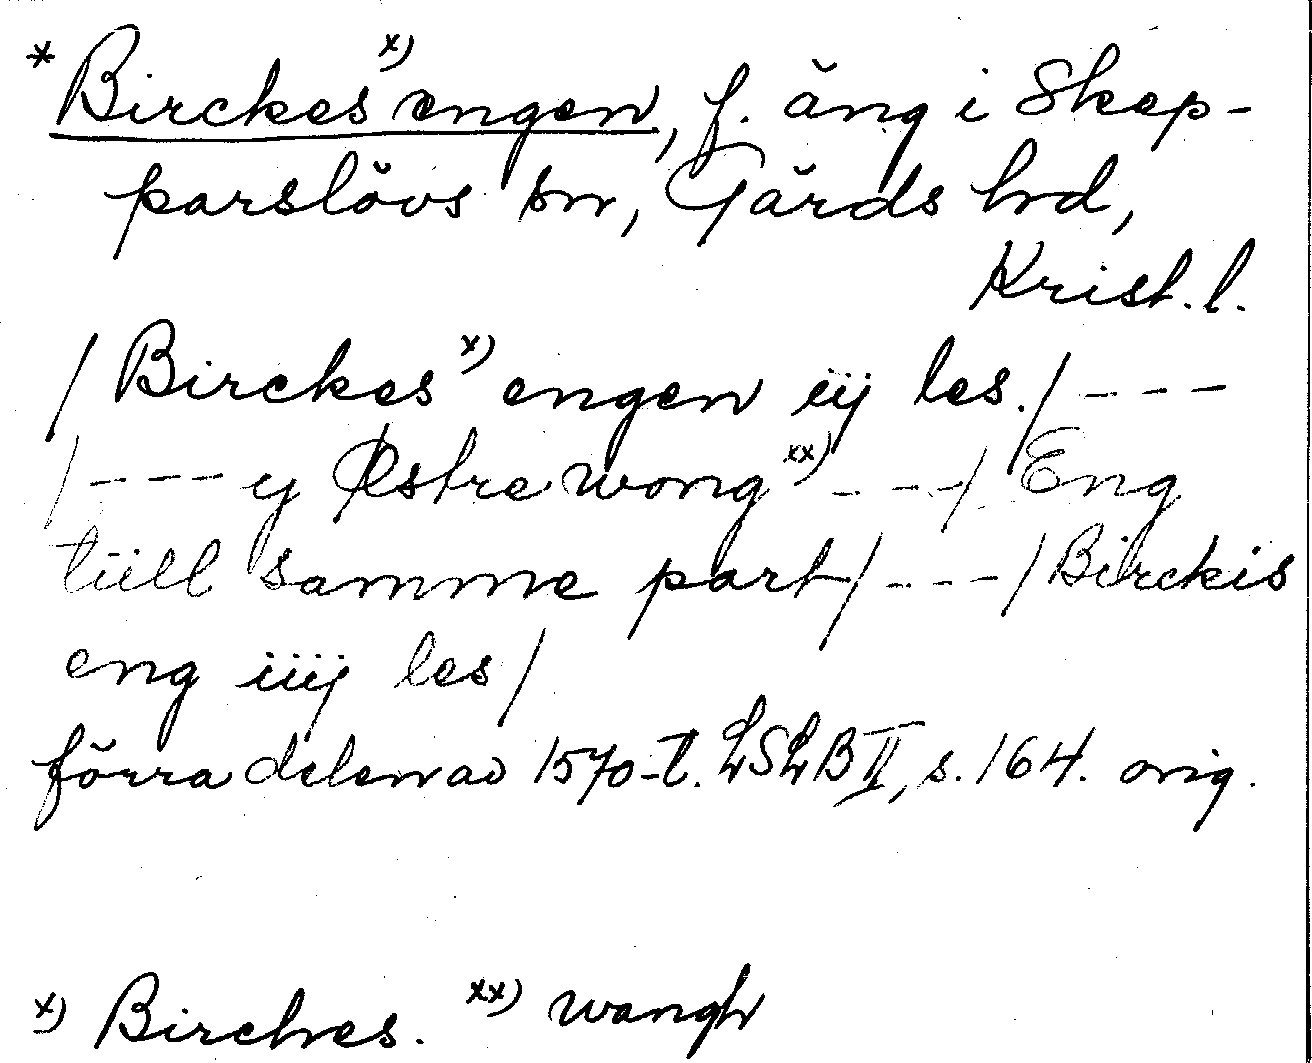 * Birckes x) engen, f. äng i Skep-
parslövs sn, Gärds hd,
Krist. l.
/ Birckes x) engen iij les. / - - -
/ - - - y Østre wong xx) - - - / Eng
tiill samme part / - - - / Birckis
eng iiij les /
förra delen av 1570-t. LSLB II, s. 164. orig.
x) Birches. xx) wangh